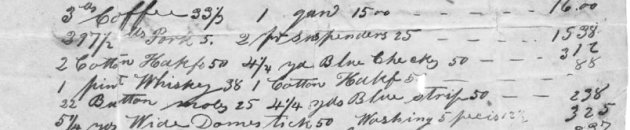 3 lbs Coffee 33⅓ 1 gun 15 00 - - - 16.00
297½ lbs Pork 5. 2 pr suspenders 25 - - - 15 38
2 Cotton Hakfs 50 4¼ yds Blue Checks 50 - - - 312
1 pint Whiskey 38 1 Cotton Hakf 5 88
22 Button molds 25 4¼ yds Blue strip 50 - - 238
5¼ yds Wide Domestick 50 Washing 5 peices 325